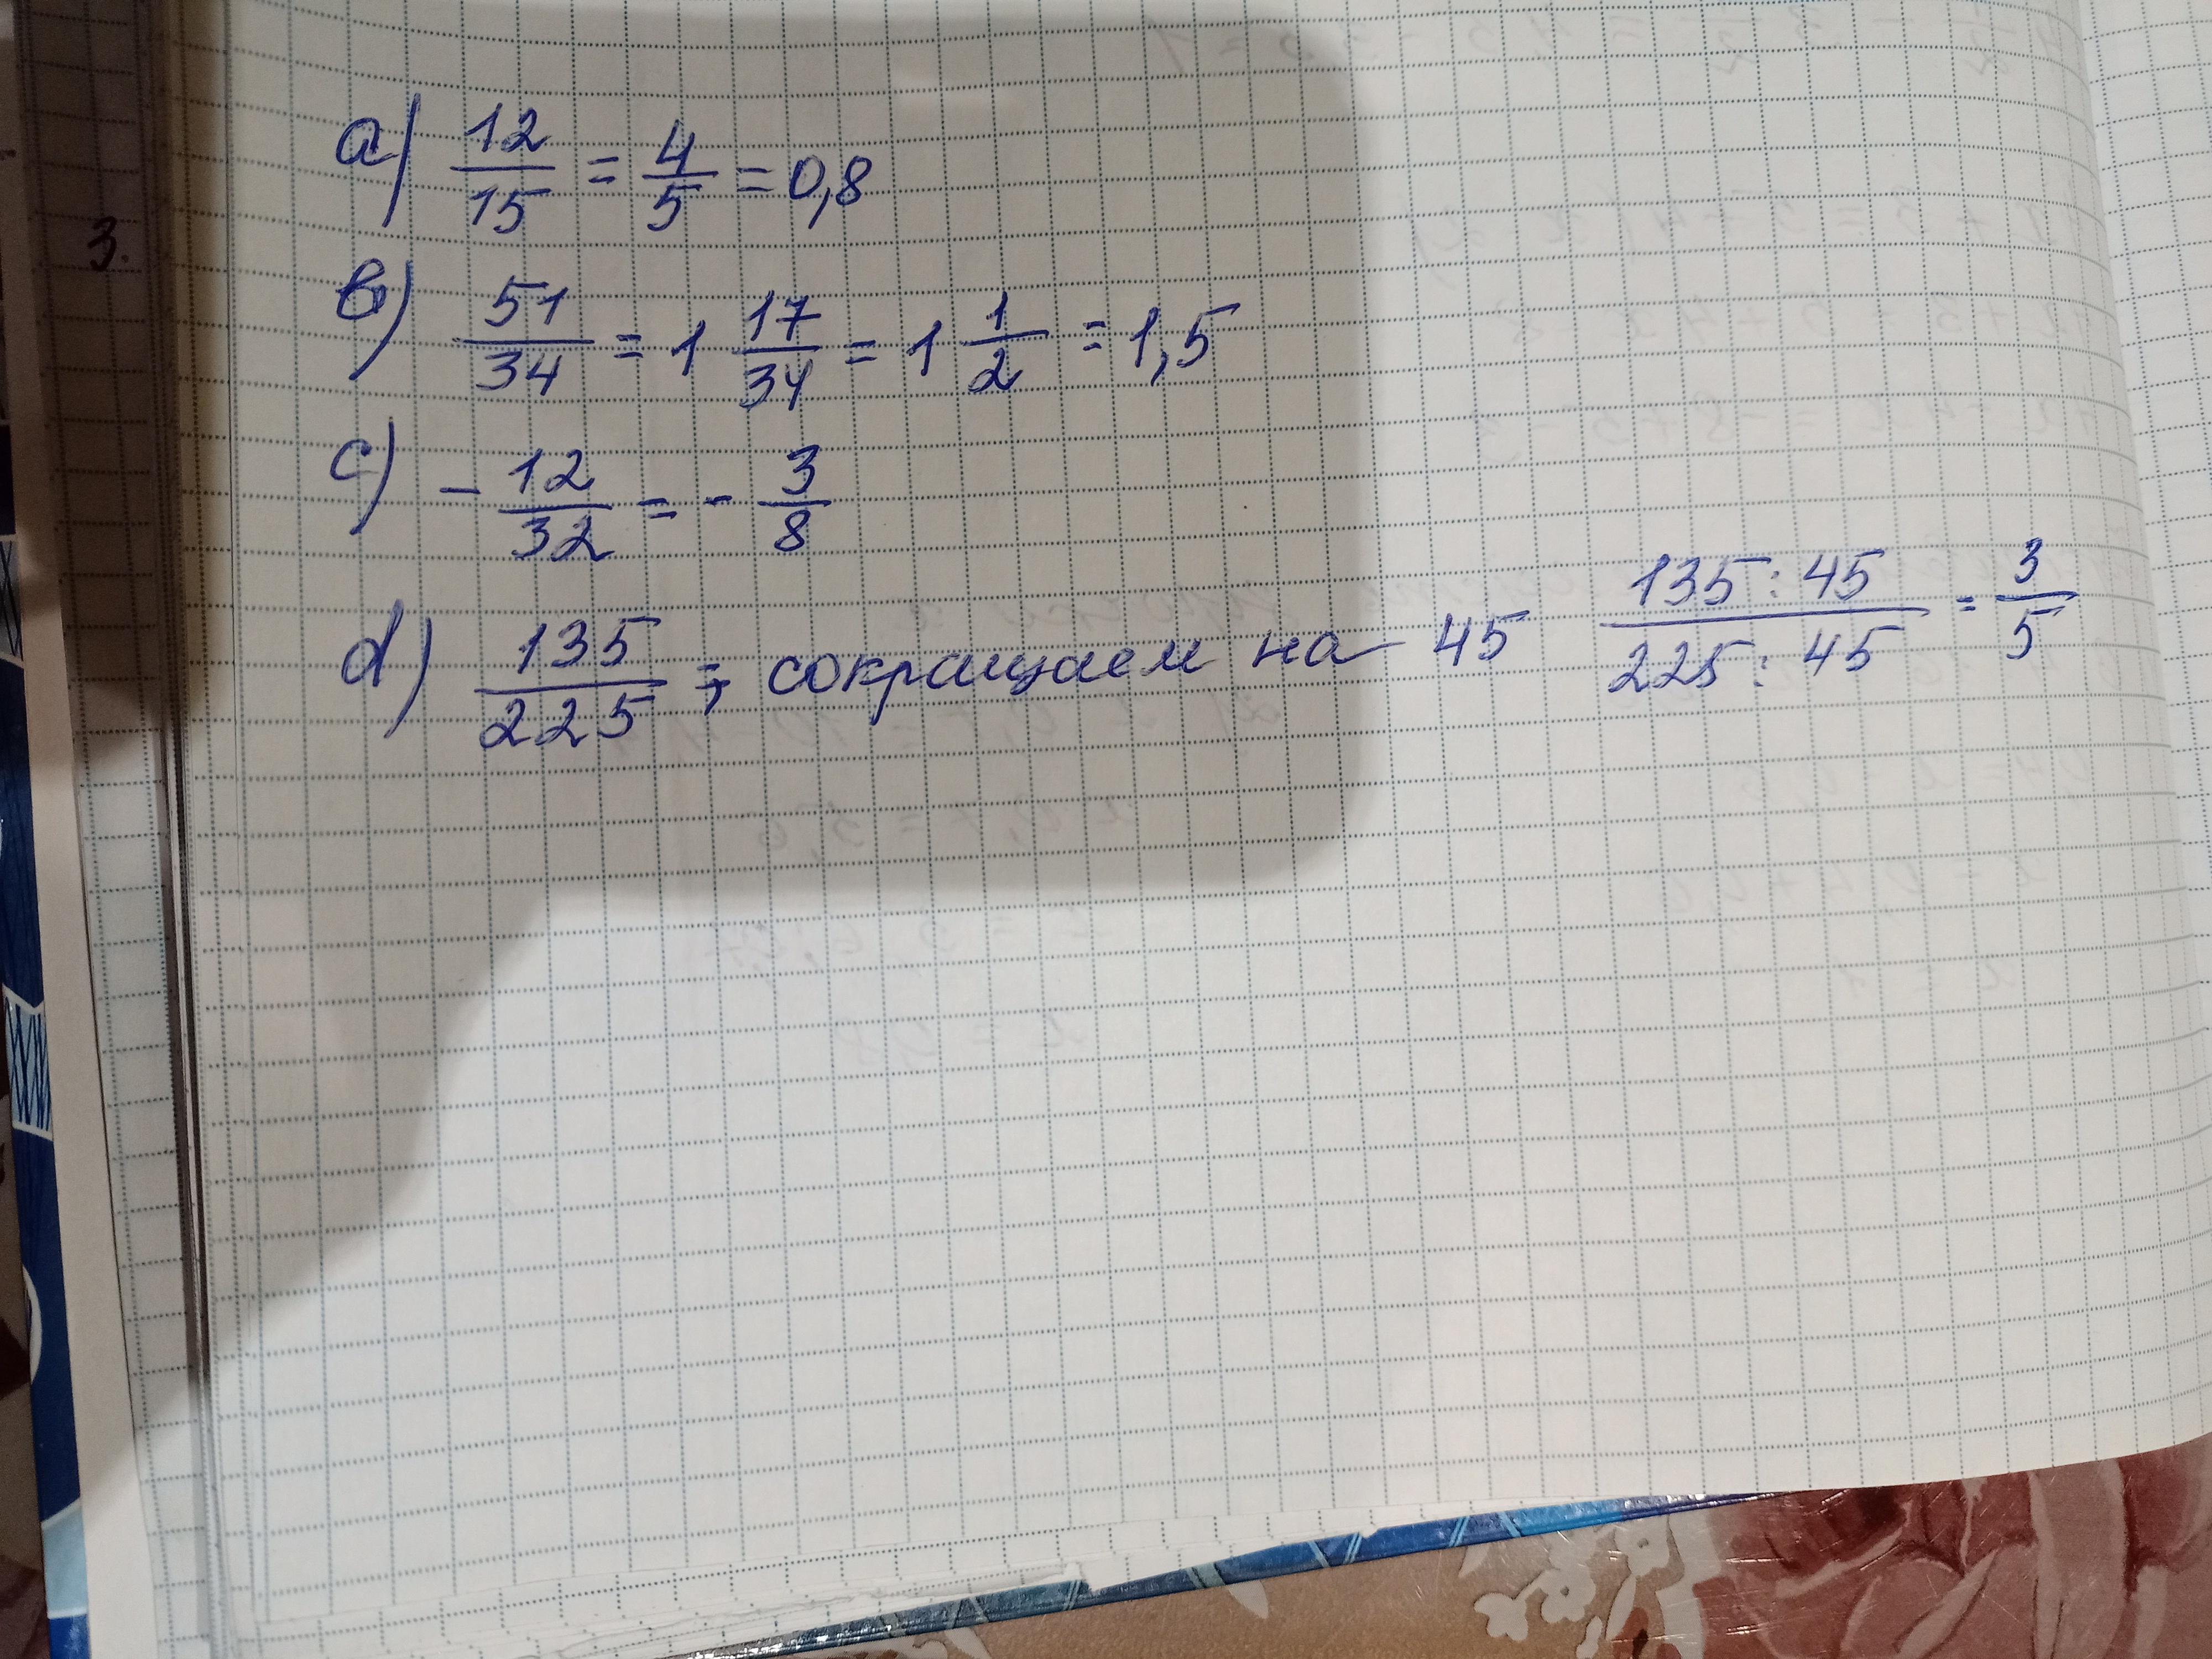 3.
a) 12/15 = 4/5 = 0,8
в) 51/34 = 1 17/34 = 1 1/2 = 1,5
c) - 12/32 = - 3/8
d) 135/225 ; сокращаем на 45 135:45/225:45 = 3/5